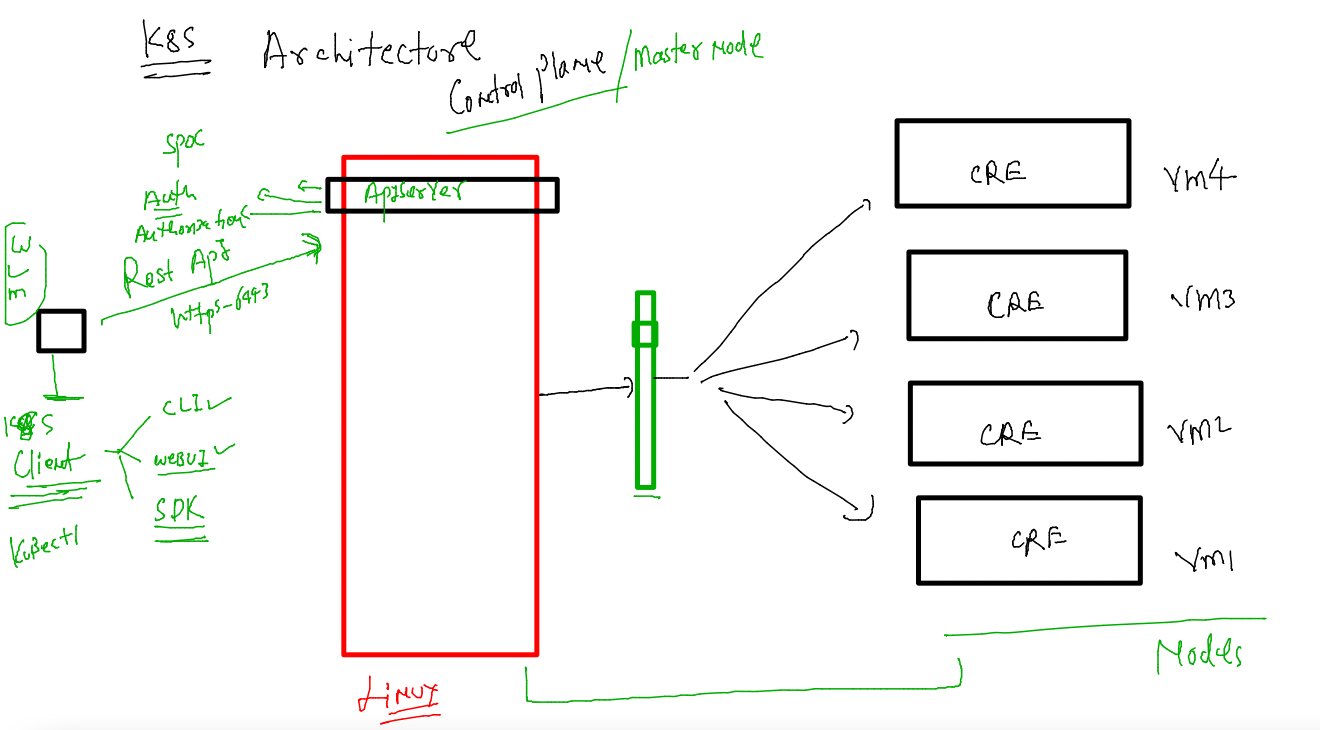 K8S Architecture
Control plane / Master Node
SPOC
Auth
Authorization
Rest Api
https-6443
W
L
M
K8S
Client
Kubectl
CLI
WEBUI
SDK
ApiServer
LiNUX
CRE VM4
CRE VM3
CRE VM2
CRE VM1
Nodes